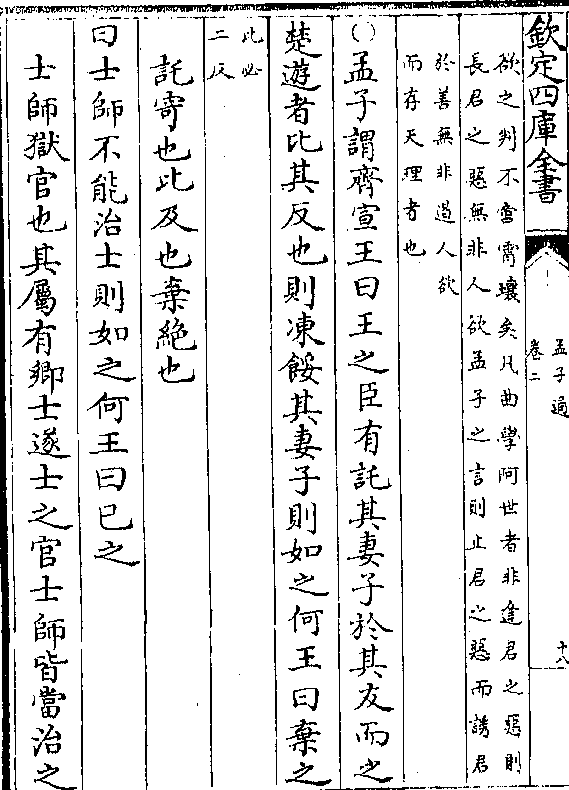 欽定四庫全書
孟子通
卷二
十八
欲之判不啻霄壤矣凡曲學阿世者非逢君之惡則
長君之惡無非人欲孟子之言則止君之惡而誘君
於善無非遏人欲
而存天理者也
○孟子謂齊宣王曰王之臣有託其妻子於其友而之
楚遊者比其反也則凍餒其妻子則如之何王曰棄之
此必
二反
託寄也比及也棄絶也
曰士師不能治士則如之何王曰已之
士師獄官也其屬有鄉士遂士之官士師皆當治之